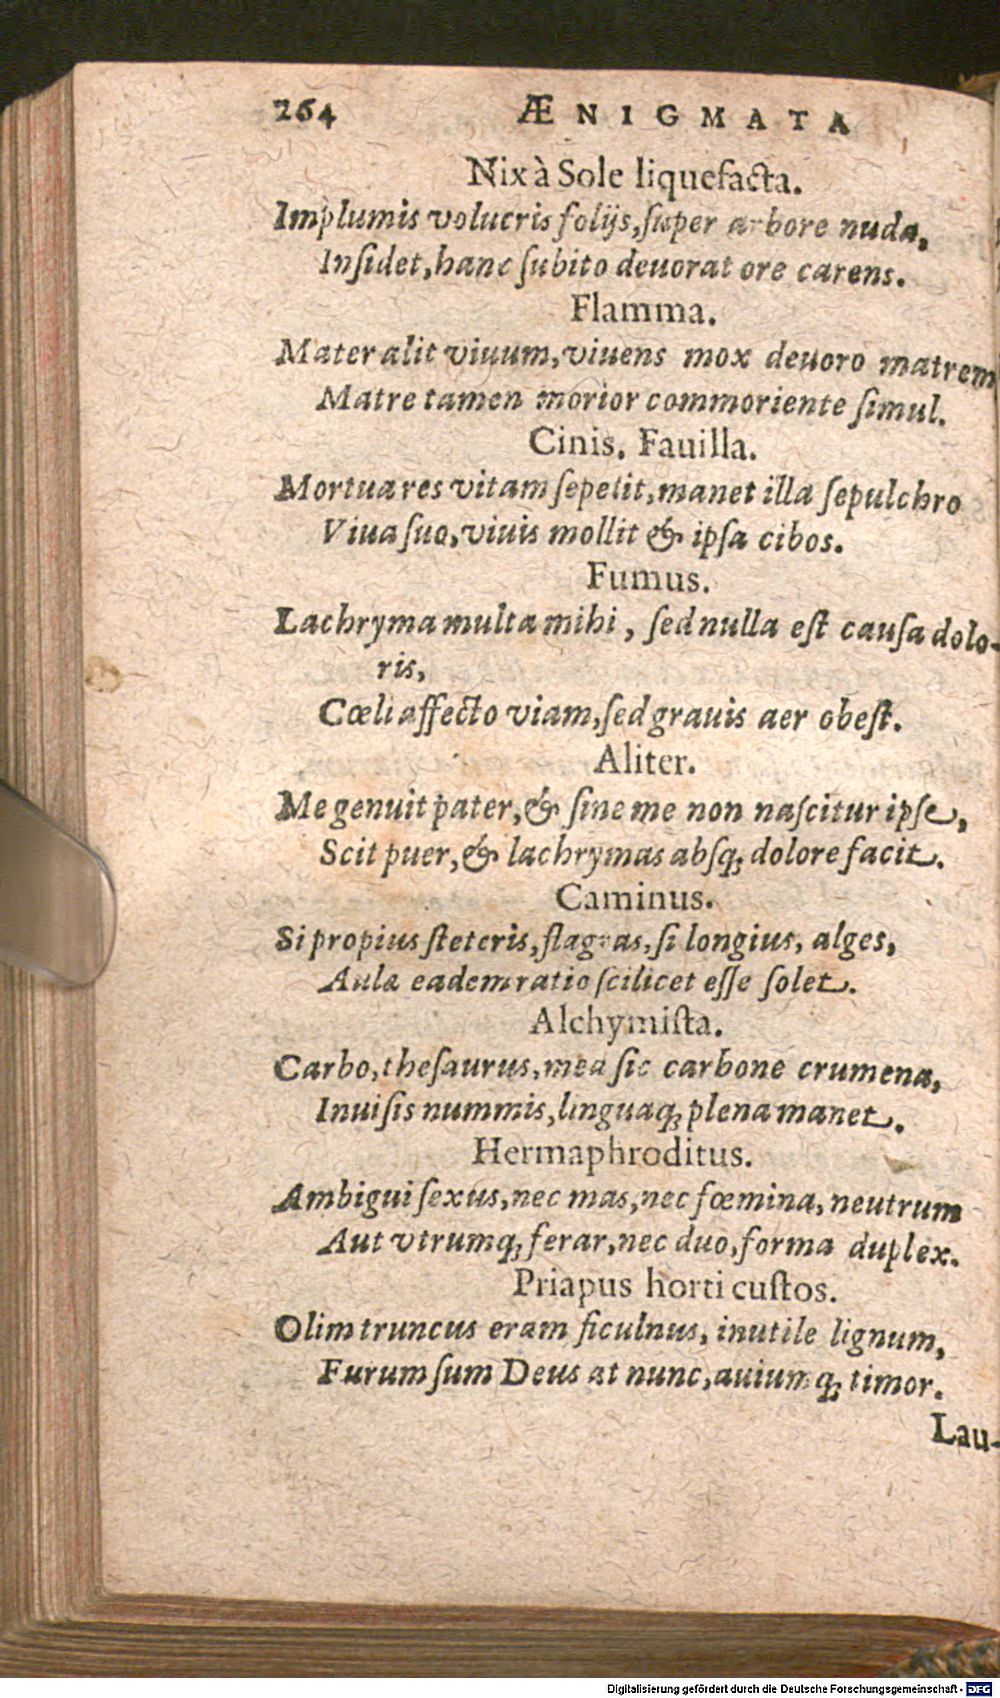 264 ÆNIGMATA
Nix à Sole liquefacta.
Implumis volucris folijs, ſuper arbore nuda,
Inſidet, hanc ſubito deuorat ore carens.
Flamma.
Mater alit viuum, viuens mox deuoro matrem
Matre tamen morior commoriente ſimul.
Cinis. Fauilla.
Mortua res vitam ſepelit, manet illa ſepulchro
Viua ſuo, viuis mollit & ipſa cibos.
Fumus.
Lachryma multa mihi, ſed nulla eſt cauſa dolo-
ris,
Cœli affecto viam, ſed grauis aer obeſt.
Aliter.
Me genuit pater, & ſine me non naſcitur ipſe,
Scit puer, & lachrymas abſq; dolore facit.
Caminus.
Si propius ſteteris, flagras, ſi longius, alges,
Aulæ eadem ratio ſcilicet eſſe ſolet.
Alchymiſta.
Carbo, theſaurus, mea ſic carbone crumena,
Inuiſis nummis, linguaq; plena manet.
Hermaphroditus.
Ambigui ſexus, nec mas, nec fœmina, neutrum
Aut vtrumq; ferar, nec duo, forma duplex.
Priapus horti cuſtos.
Olim truncus eram ficulnus, inutile lignum,
Furum ſum Deus at nunc, auiumq; timor.
Lau-
Digitalisierung gefördert durch die Deutsche Forschungsgemeinschaft - DFG